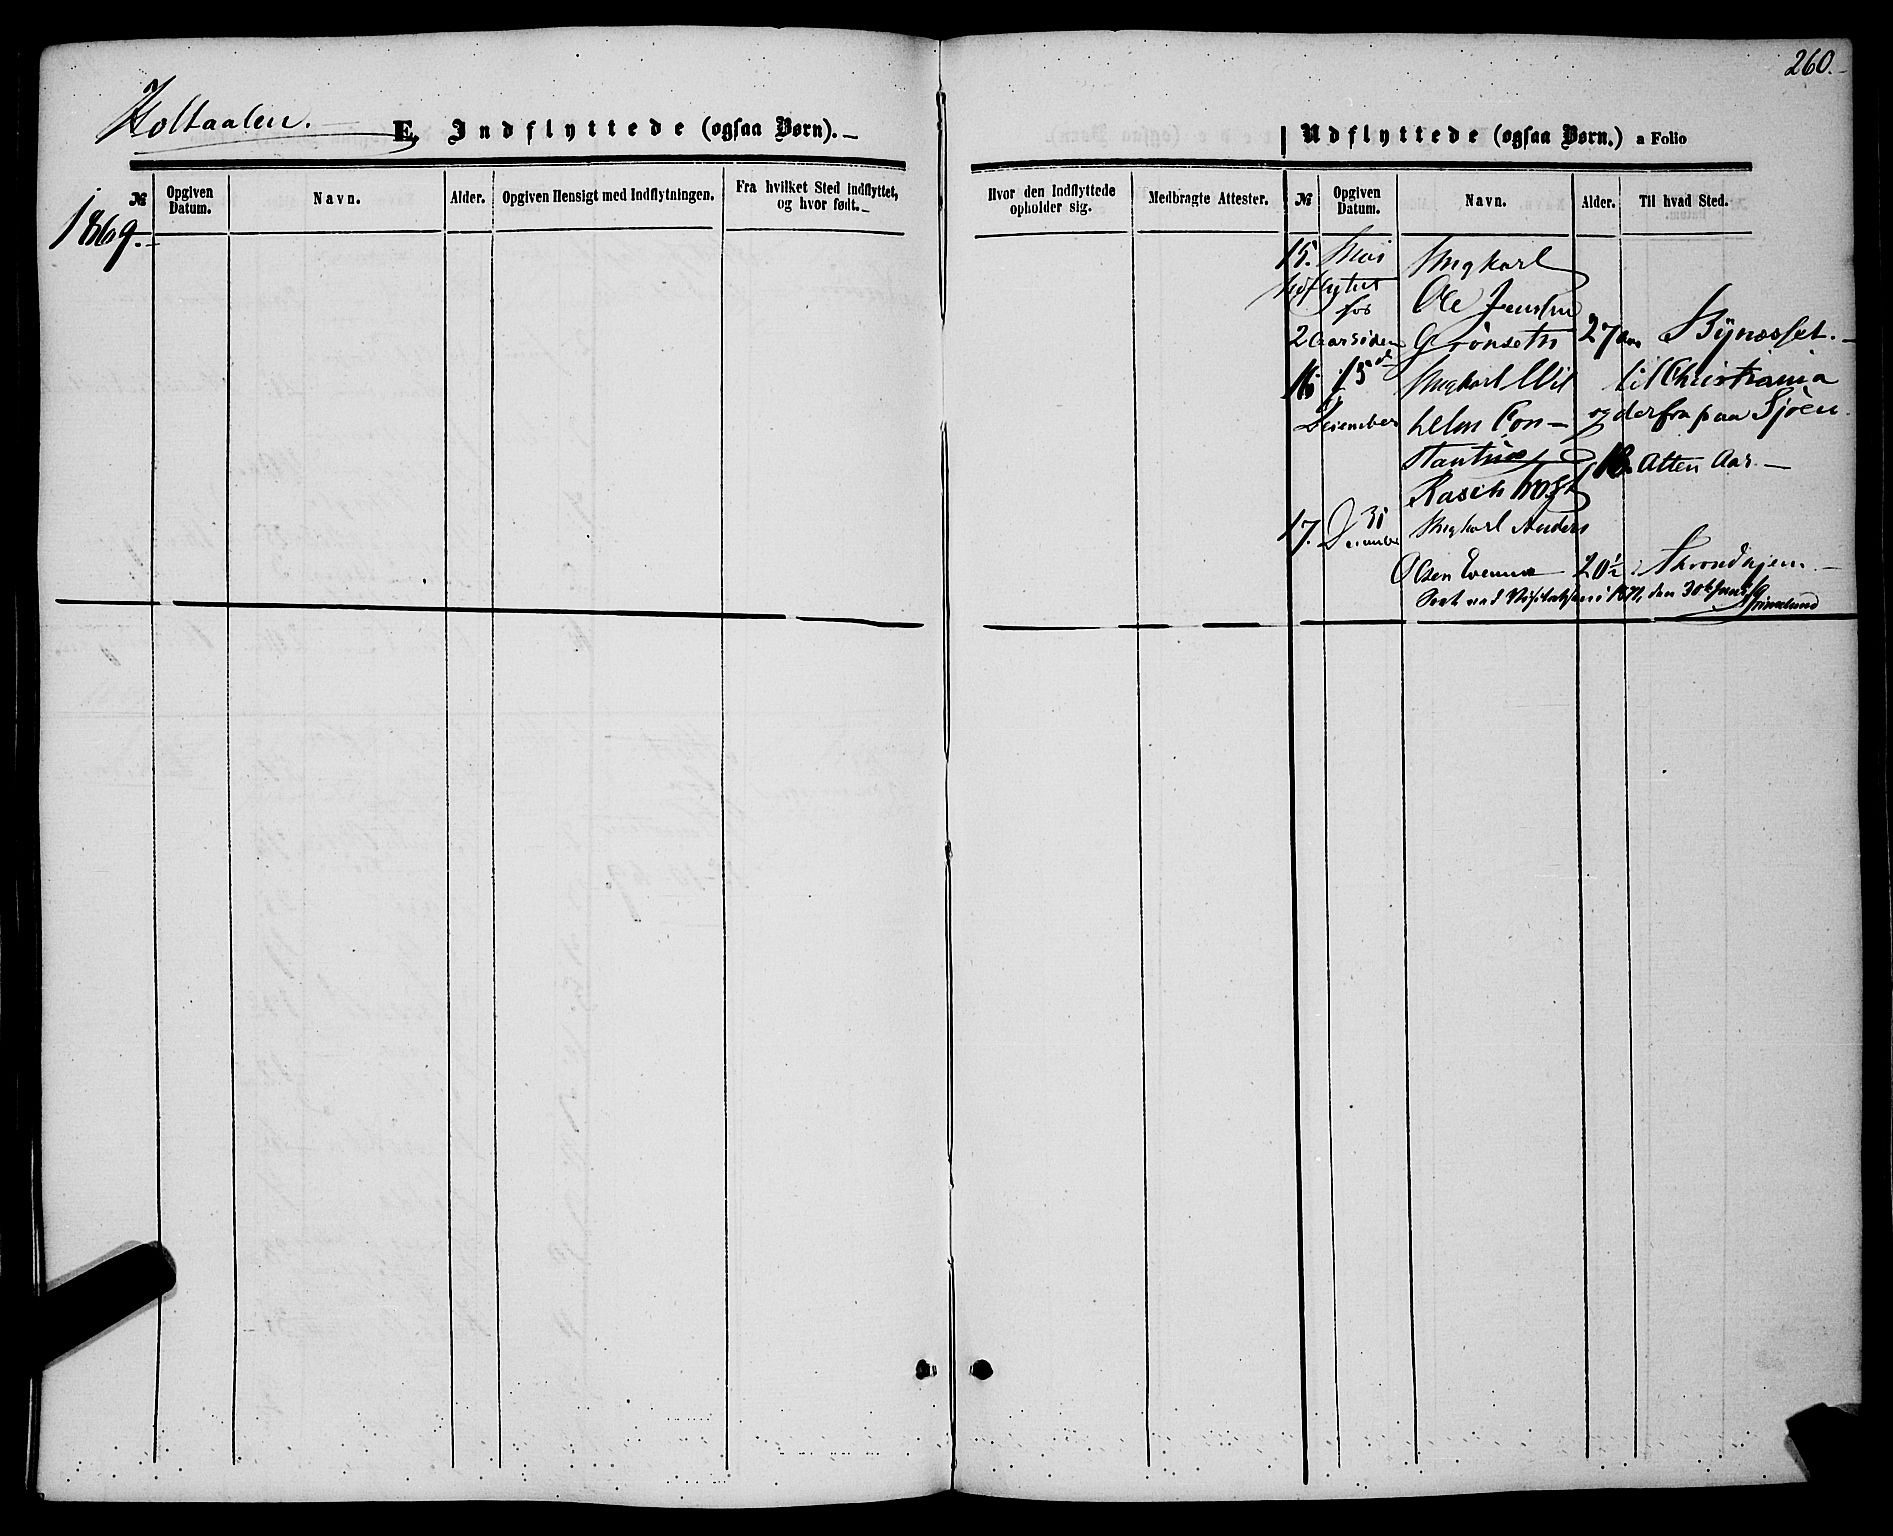 260.
Holtaalen.
E. Indflyttede (ogsaa Børn).
Udflyttede (ogsaa Børn.) a Folio
i 1869.
№ Opgiven Datum. Navn. Alder. Opgiven Hensigt med Indflytningen. Fra hvilket Sted indflyttet, og hvor født.
Hvor den Indflyttede opholder sig. Medbragte Attester. № Opgiven Datum. Navn. Alder. Til hvad Sted.
15. Mai Ungkarl
Udflyttet Ole Jensen
for
2 Aar siden Grönseth 27 Aar Bynæsset.
16 15de Ungkarl Wil til Christiania
December helm Con- og derfra paa Sjøen
stantin 18 Atten Aar.
Rasch Vogt
17. 31 December Ungkarl Anders
Olsen 20½ Throndhjem.
Seet ved Visitatsen i den 30te Juni Grimelund